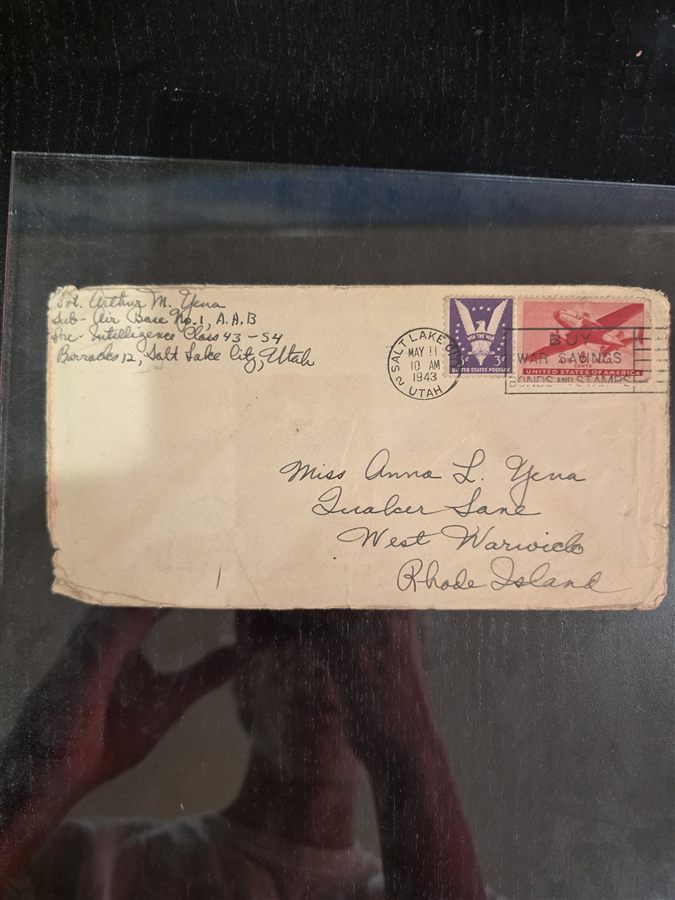 Arthur M. Yena
Sub-Air Base No. 1, A.A.B
Pre-Intelligence Class 43-54
Barracks 12, Salt Lake City, Utah
SALT LAKE CITY
2
MAY 11
10 AM
1943
UTAH
WIN THE WAR
3¢ 3¢
UNITED STATES POSTAGE
BUY
WAR SAVINGS
BONDS AND STAMPS
CENTS
UNITED STATES OF AMERICA
Miss Anna L. Yena
Quaker Lane
West Warwick
Rhode Island